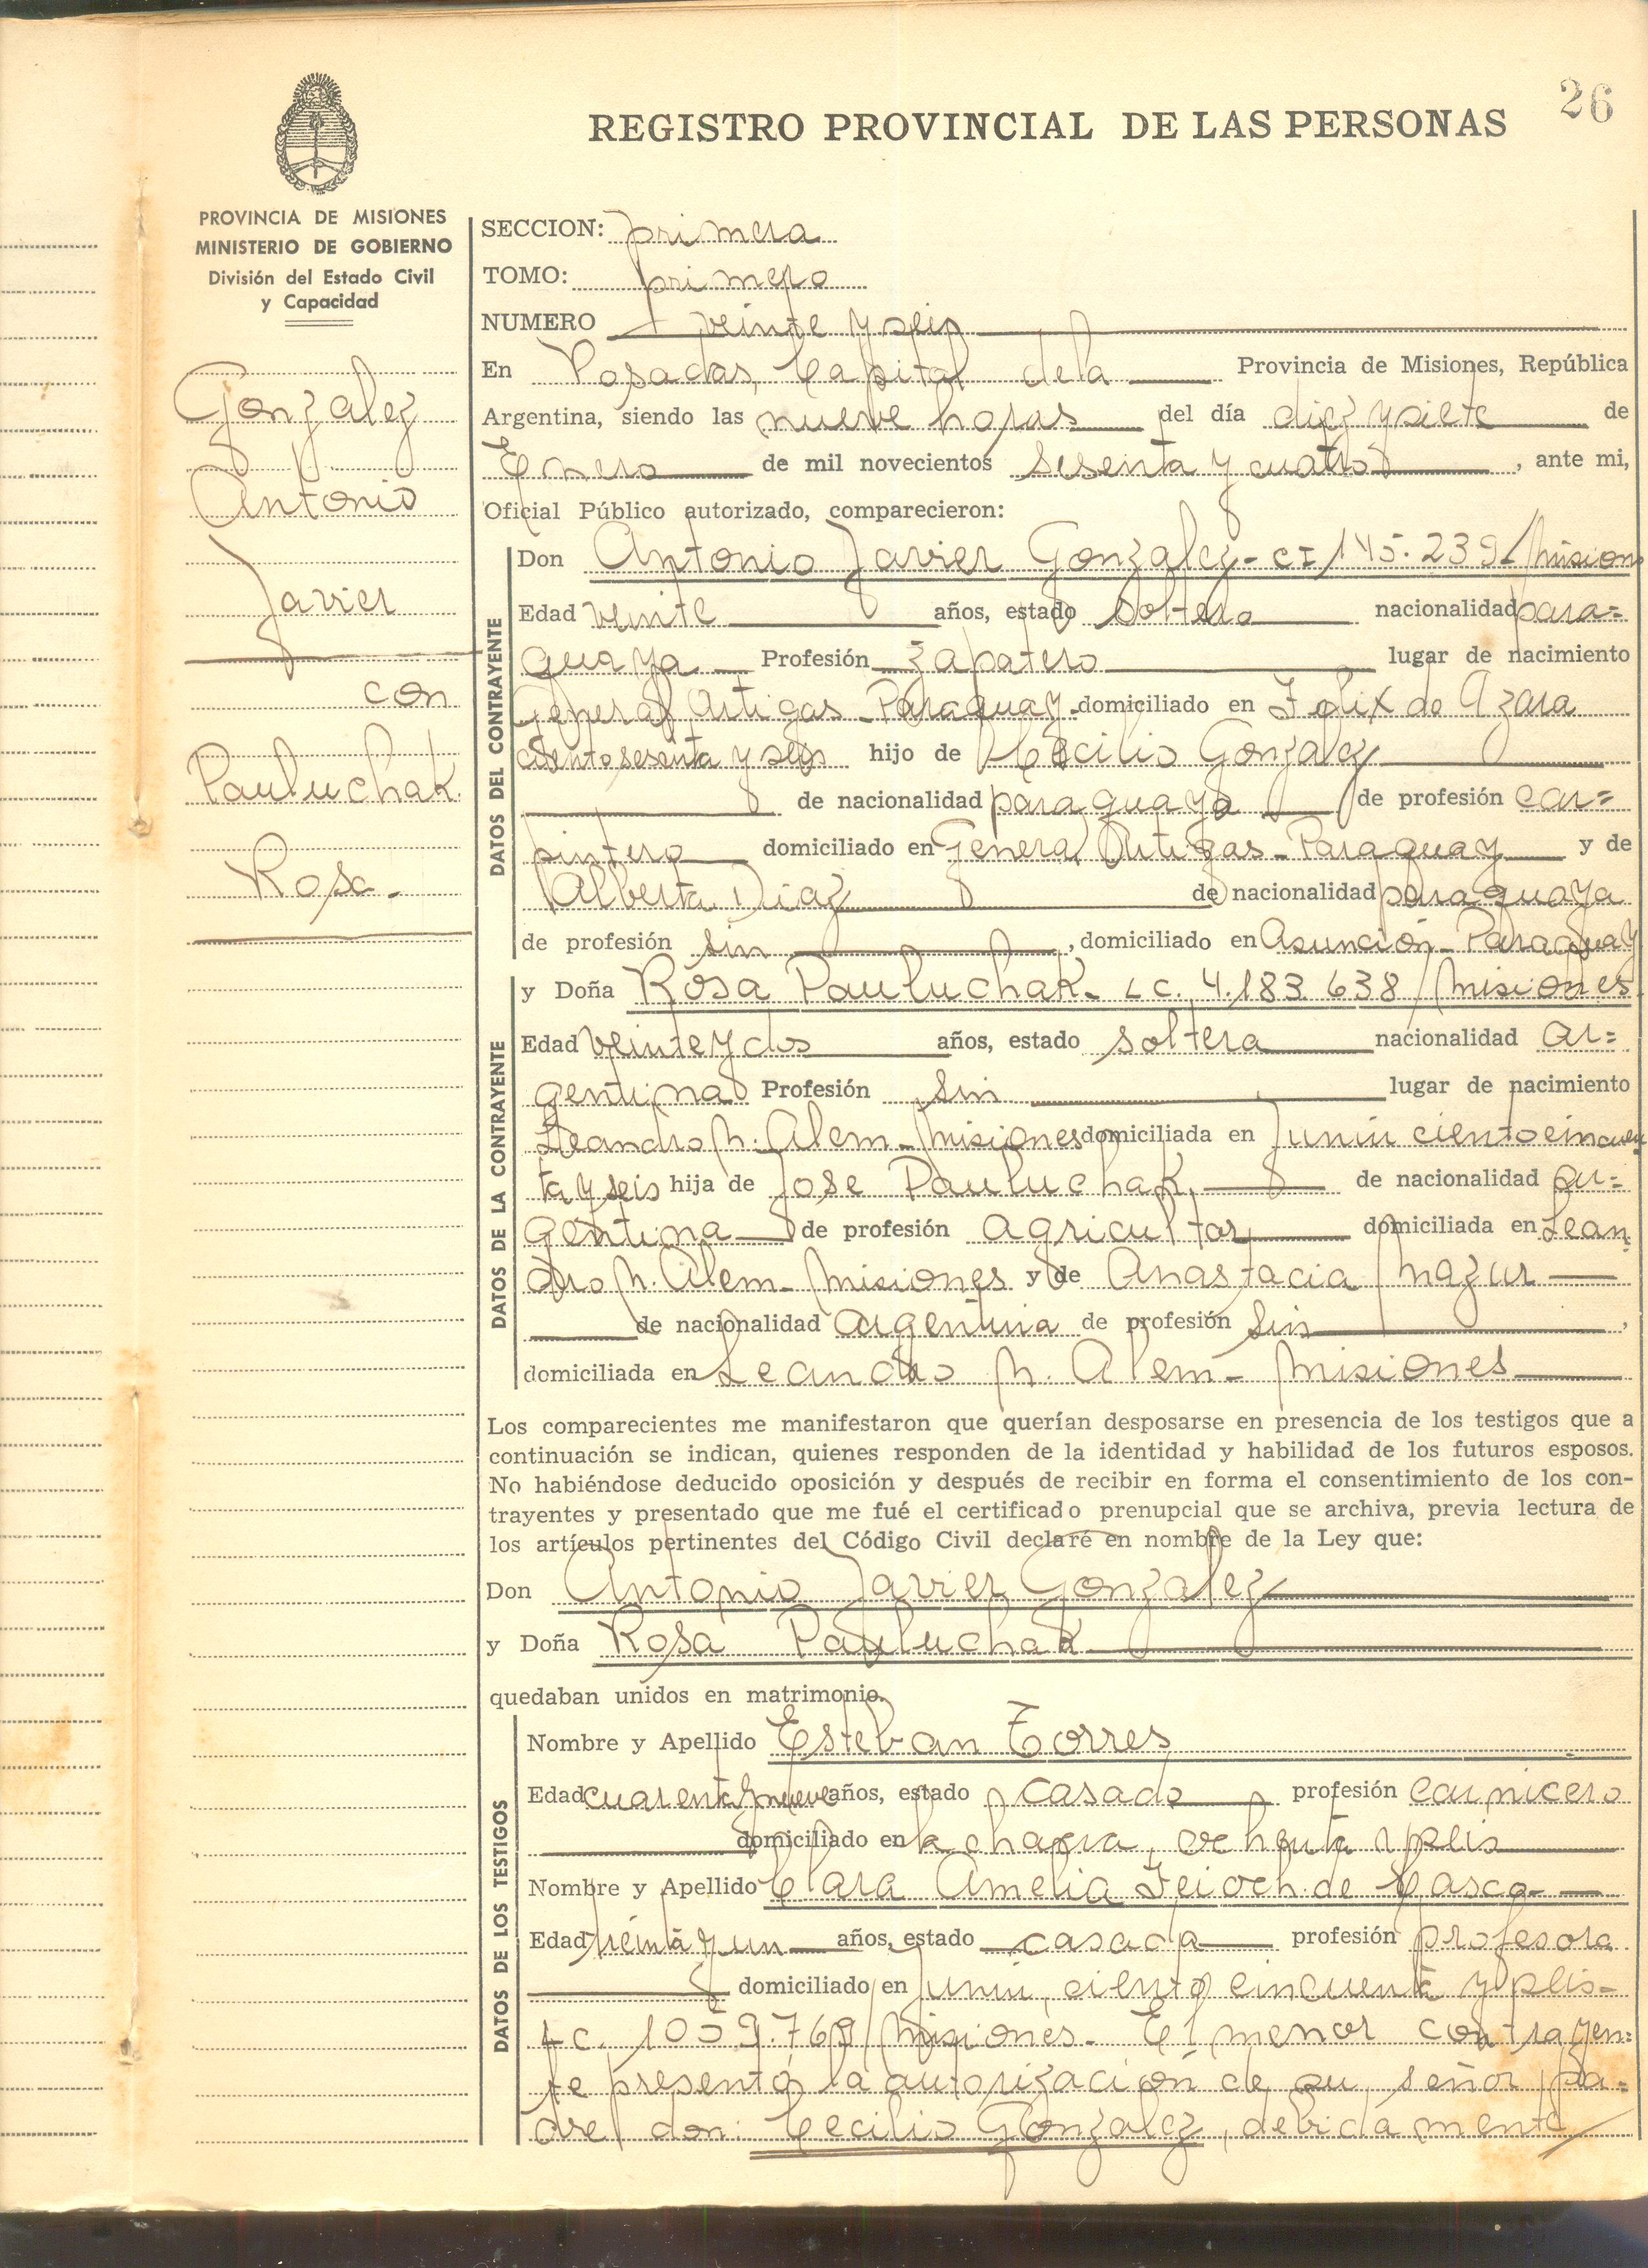 26
REGISTRO PROVINCIAL DE LAS PERSONAS
PROVINCIA DE MISIONES
MINISTERIO DE GOBIERNO
División del Estado Civil
y Capacidad
Gonzalez
Antonio
Javier
con
Pauluchak
Rosa.
SECCION: primera
TOMO: primero
NUMERO veinte y seis
En Posadas, Capital de la Provincia de Misiones, República
Argentina, siendo las nueve horas del día diez y siete de
Enero de mil novecientos sesenta y cuatro, ante mi,
Oficial Público autorizado, comparecieron:
DATOS DEL CONTRAYENTE
Don Antonio Javier Gonzalez - CI 145.239 / Mision
Edad veinte años, estado soltero nacionalidad para=
guaya Profesión zapatero lugar de nacimiento
General Artigas - Paraguay - domiciliado en Felix de Azara
ciento sesenta y seis hijo de Cecilio Gonzalez
de nacionalidad paraguaya de profesión car=
pintero domiciliado en General Artigas - Paraguay y de
Alberta Diaz de nacionalidad paraguaya
de profesión sin, domiciliado en Asunción - Paraguay
DATOS DE LA CONTRAYENTE
y Doña Rosa Pauluchak - LC. 4.183.638 / Misiones
Edad veinte y dos años, estado soltera nacionalidad ar=
gentina Profesión sin lugar de nacimiento
Leandro N. Alem - Misiones domiciliada en Junin ciento cincuen
ta y seis hija de Jose Pauluchak, de nacionalidad ar=
gentina de profesión agricultor domiciliada en Lean
dro N. Alem - Misiones y de Anastacia Mazur
de nacionalidad argentina de profesión sin,
domiciliada en Leandro N. Alem - Misiones
Los comparecientes me manifestaron que querían desposarse en presencia de los testigos que a
continuación se indican, quienes responden de la identidad y habilidad de los futuros esposos.
No habiéndose deducido oposición y después de recibir en forma el consentimiento de los con-
trayentes y presentado que me fué el certificado prenupcial que se archiva, previa lectura de
los artículos pertinentes del Código Civil declaré en nombre de la Ley que:
Don Antonio Javier Gonzalez
y Doña Rosa Pauluchak
quedaban unidos en matrimonio.
DATOS DE LOS TESTIGOS
Nombre y Apellido Esteban Torres
Edad cuarenta y nueve años, estado casado profesión carnicero
domiciliado en la chacra, ochenta y seis
Nombre y Apellido Clara Amelia de Casco
Edad treinta y un años, estado casada profesión profesora
domiciliado en Junin, ciento cincuenta y seis -
LC. / Misiones - El menor contrayen=
te presentó la autorización de su señor pa=
dre don: Cecilio Gonzalez, debidamente